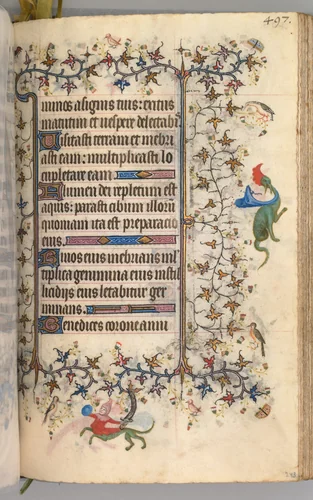 497.
minos a signis tuis: exitus
matutini et vespere delectabis
Visitasti terram et inebri
asti eam: multiplicasti lo
cupletare eam
Flumen dei repletum est
aquis: parasti cibum illorum
quoniam ita est preparacio
eius.
Rivos eius inebrians mul
tiplica genimina eius in stil
licidiis eius letabitur ger
minans.
Benedices corone anni